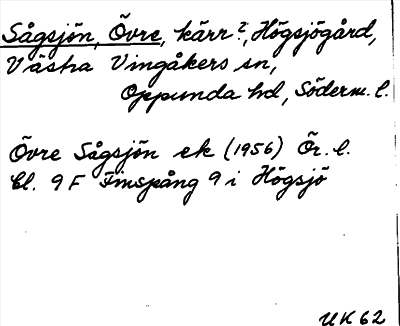 Sågsjön, Övre, kärr?, Högsjögård,
Västra Vingåkers sn,
Oppunda hd, Söderm. l.
Övre Sågsjön ek (1956) Ör. l.
Bl. 9 F Finspång 9 i Högsjö
UK 62